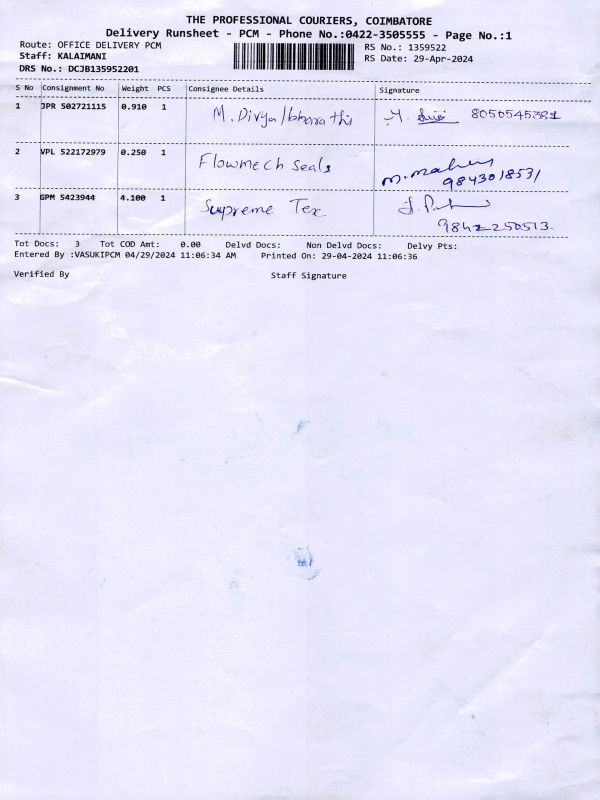 THE PROFESSIONAL COURIERS, COIMBATORE
Delivery Runsheet - PCM - Phone No.:0422-3505555 - Page No.:1
Route: OFFICE DELIVERY PCM
Staff: KALAIMANI
DRS No.: DCJB135952201
RS No.: 1359522
RS Date: 29-Apr-2024
S No Consignment No Weight PCS Consignee Details Signature
1 JPR 502721115 0.910 1 M. Divya/bharathi 8050545381
2 VPL 522172979 0.250 1 Flowmech Seals
9843018531
3 GPM 5423944 4.100 1 Supreme Tex
9842250513.
Tot Docs: 3 Tot COD Amt: 0.00 Delvd Docs: Non Delvd Docs: Delvy Pts:
Entered By :VASUKIPCM 04/29/2024 11:06:34 AM Printed On: 29-04-2024 11:06:36
Verified By Staff Signature